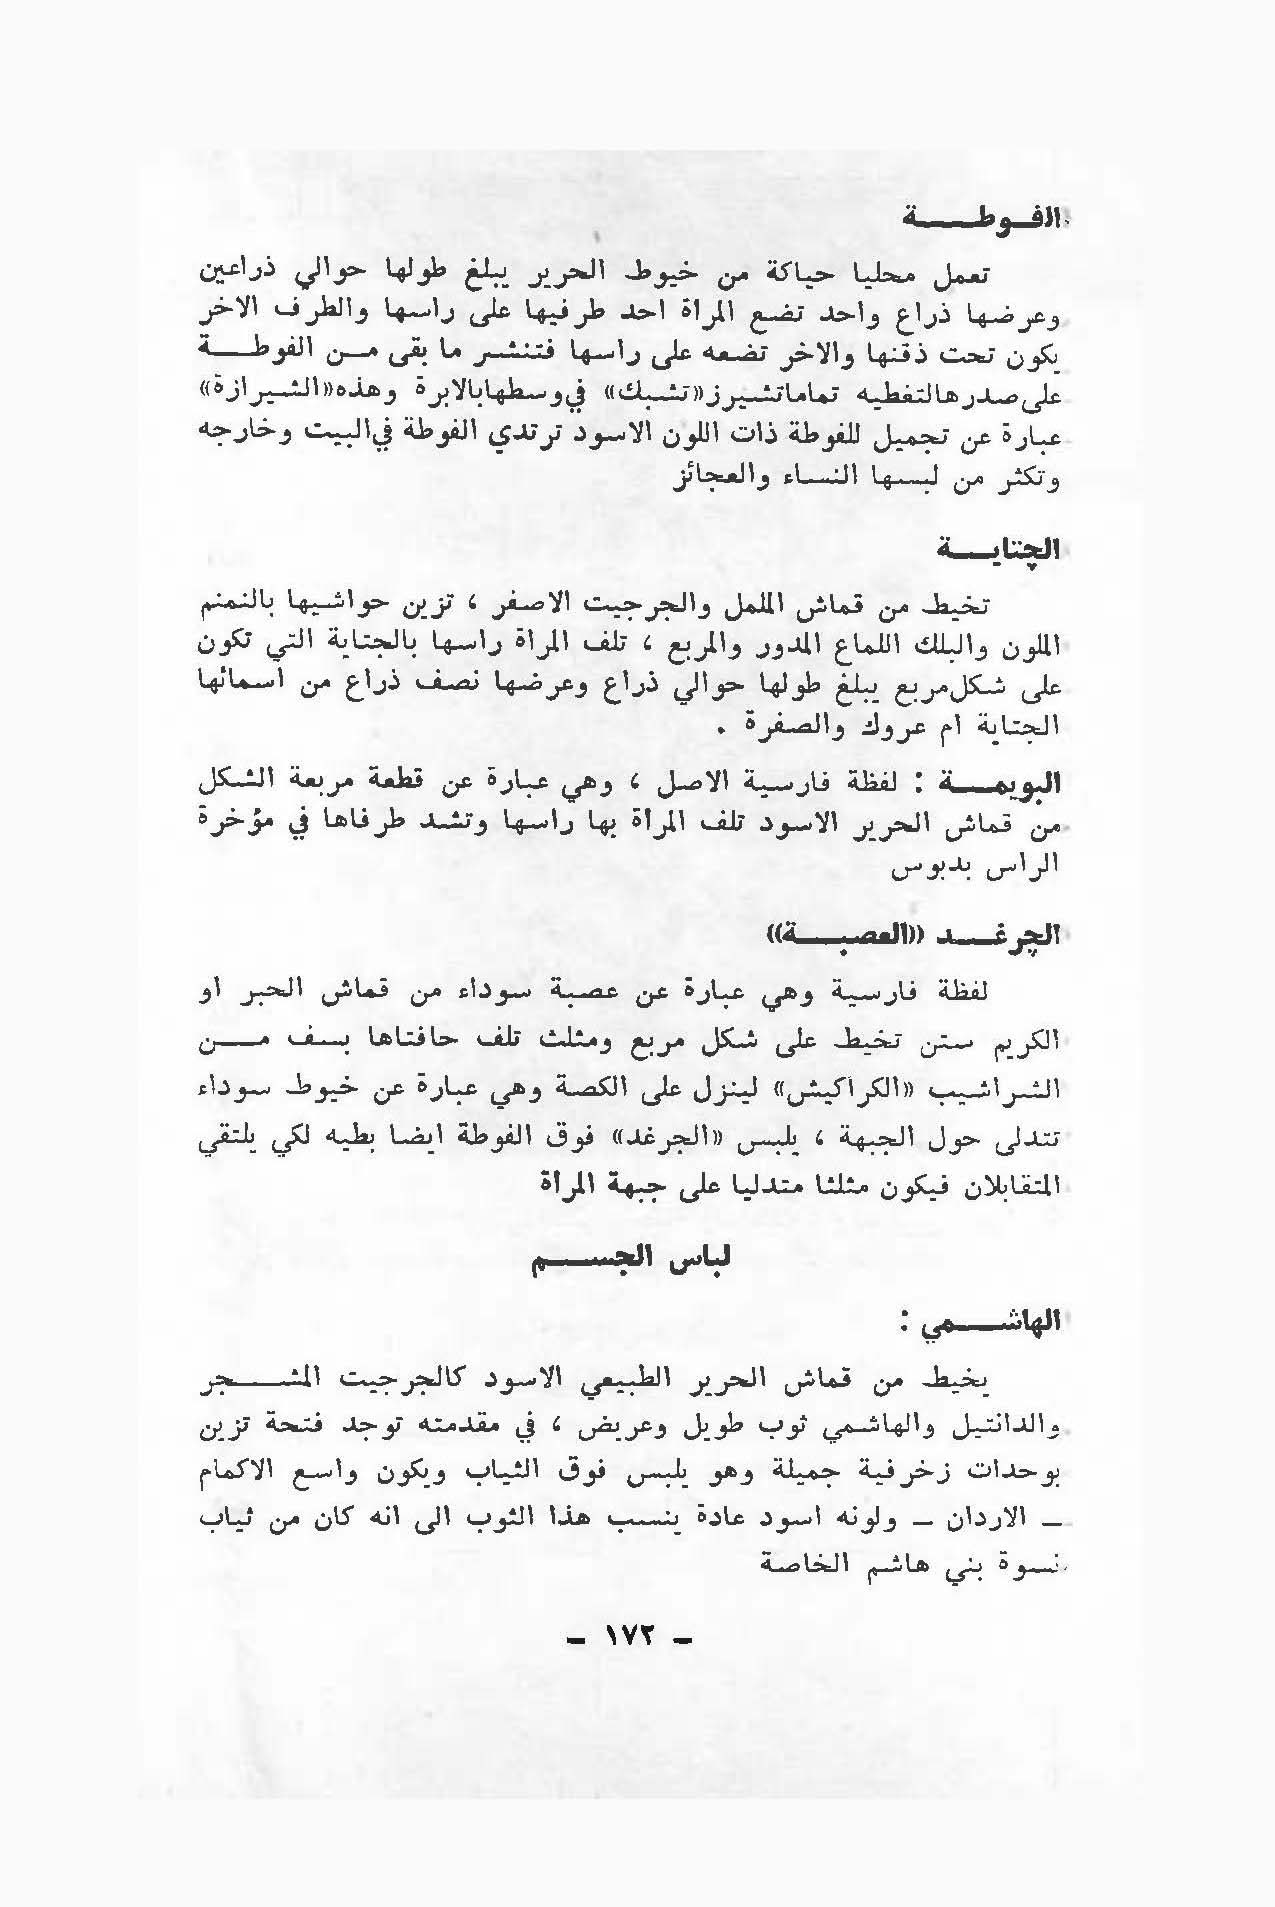 الفوطة
تعمل محليا حياكة من خيوط الحرير يبلغ طولها حوالي ذراعين
وعرضها ذراع واحد تضع المرأة احد طرفيها على راسها والطرف الاخر
يكون تحت ذقنها والاخر تضعه على راسها فتنشر ما بقى من الفوطة
على صدرها لتغطيه تماما تشيرز «تشبك» في وسطها بالابرة وهذه «الشيرازة»
عبارة عن تجميل للفوطة ذات اللون الاسود ترتدي الفوطة في البيت وخارجه
وتكثر من لبسها النساء والعجائز
الچتاية
تخيط من قماش الململ والجرجيت الاصفر ، تزين حواشيها بالنمنم
الملون والبلك اللماع المدور والمربع ، تلف المرأة راسها بالجتاية التي تكون
على شكل مربع يبلغ طولها حوالي ذراع وعرضها نصف ذراع من اسمائها
الجتاية ام عروك والصفرة .
البويمة : لفظة فارسية الاصل ، وهي عبارة عن قطعة مربعة الشكل
من قماش الحرير الاسود تلف المرأة بها راسها وتشد طرفاها في مؤخرة
الراس بدبوس
الچرغد «العصبة»
لفظة فارسية وهي عبارة عن عصبة سوداء من قماش الحبر او
الكريم ستن تخيط على شكل مربع ومثلث تلف حافتاها بسف من
الشراشيب «الكراكيش» لينزل على الكصة وهي عبارة عن خيوط سوداء
تتدلى حول الجبهة ، يلبس «الجرغد» فوق الفوطة ايضا بطيه لكي يلتقي
المتقابلان فيكون مثلثا متدليا على جبهة المرأة
لباس الجسم
الهاشمي :
يخيط من قماش الحرير الطبيعي الاسود كالجرجيت المشجر
والدانتيل والهاشمي ثوب طويل وعريض ، في مقدمته توجد فتحة تزين
بوحدات زخرفية جميلة وهو يلبس فوق الثياب ويكون واسع الاكمام
ـ الاردان ـ ولونه اسود عادة ينسب هذا الثوب الى انه كان من ثياب
نسوة بني هاشم الخاصة
ـ ١٧٢ ـ